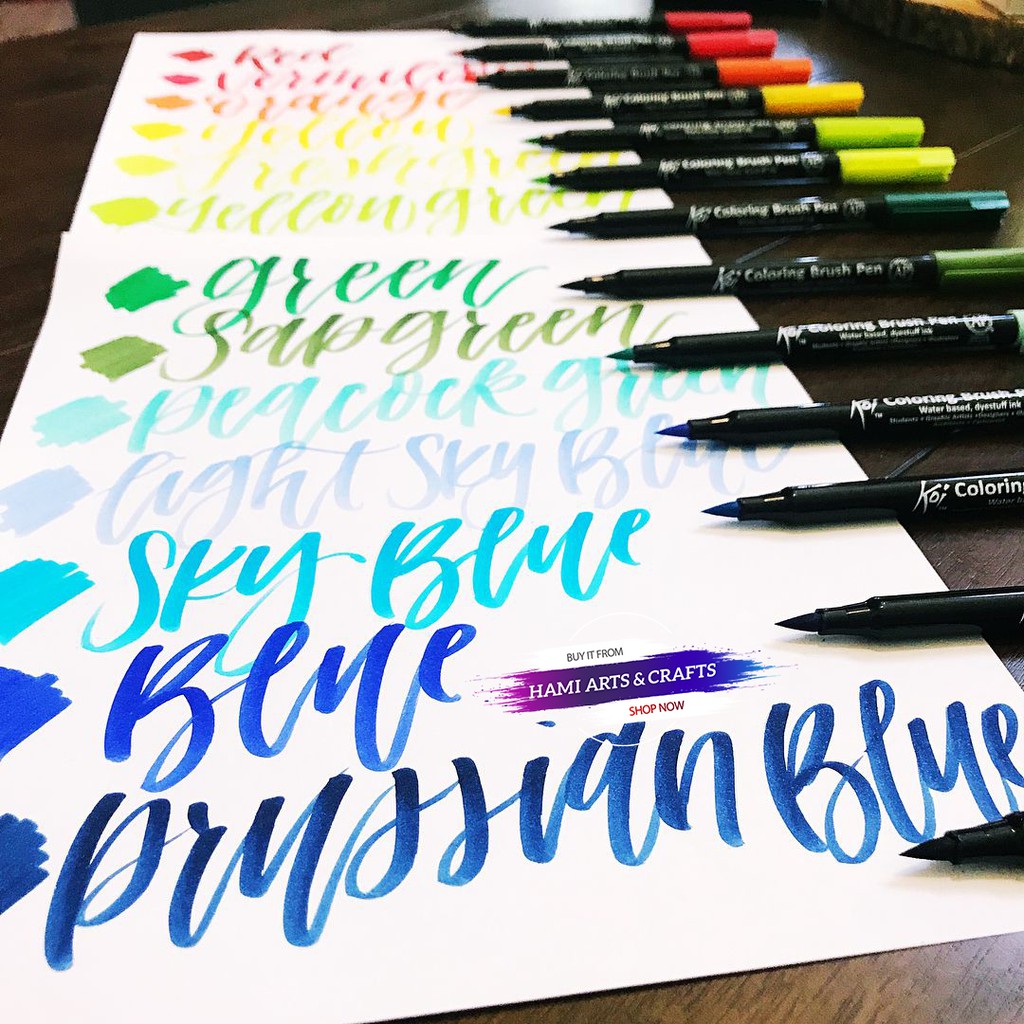 Red
Vermilion
Orange
Yellow
Fresh green
Yellow green
green
Sap green
peacock green
light Sky Blue
Sky Blue
Blue
Prussian Blue
BUY IT FROM
HAMI ARTS & CRAFTS
SHOP NOW
Coloring Brush Pen
Koi Coloring Brush Pen
Koi Coloring Brush Pen
Koi Coloring Brush Pen AP
Koi Coloring Brush Pen AP
Koi Coloring Brush Pen AP
Water based, dyestuff ink
Koi Coloring Brush Pen
Water based, dyestuff ink
Koi Coloring